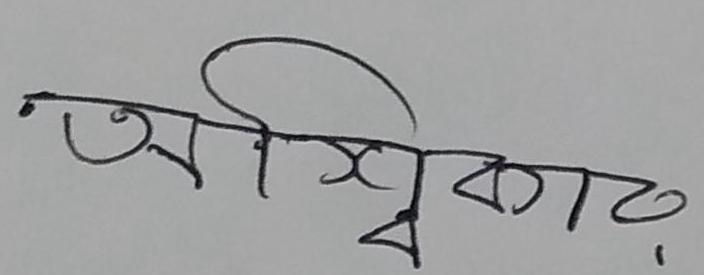 অস্বিকার